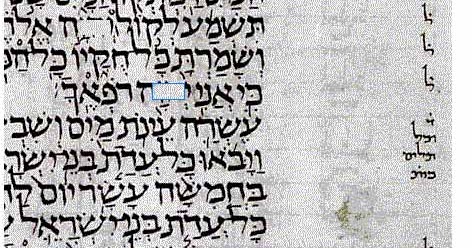 תִּשְׁמַע לְקוֹל ה אלה
וְשָׁמַרְתָּ כָּל חֻקָּיו כָּל המ
כִּי אֲנִי י ה רֹפְאֶךָ
עֶשְׂרֵה עֵינֹת מַיִם וְשִׁב
וַיָּבֹאוּ כָּל עֲדַת בְּנֵי יִשְׂר
בַּחֲמִשָּׁה עָשָׂר יוֹם ל
כָּל עֲדַת בְּנֵי יִשְׂרָאֵל
ל
ל
ל